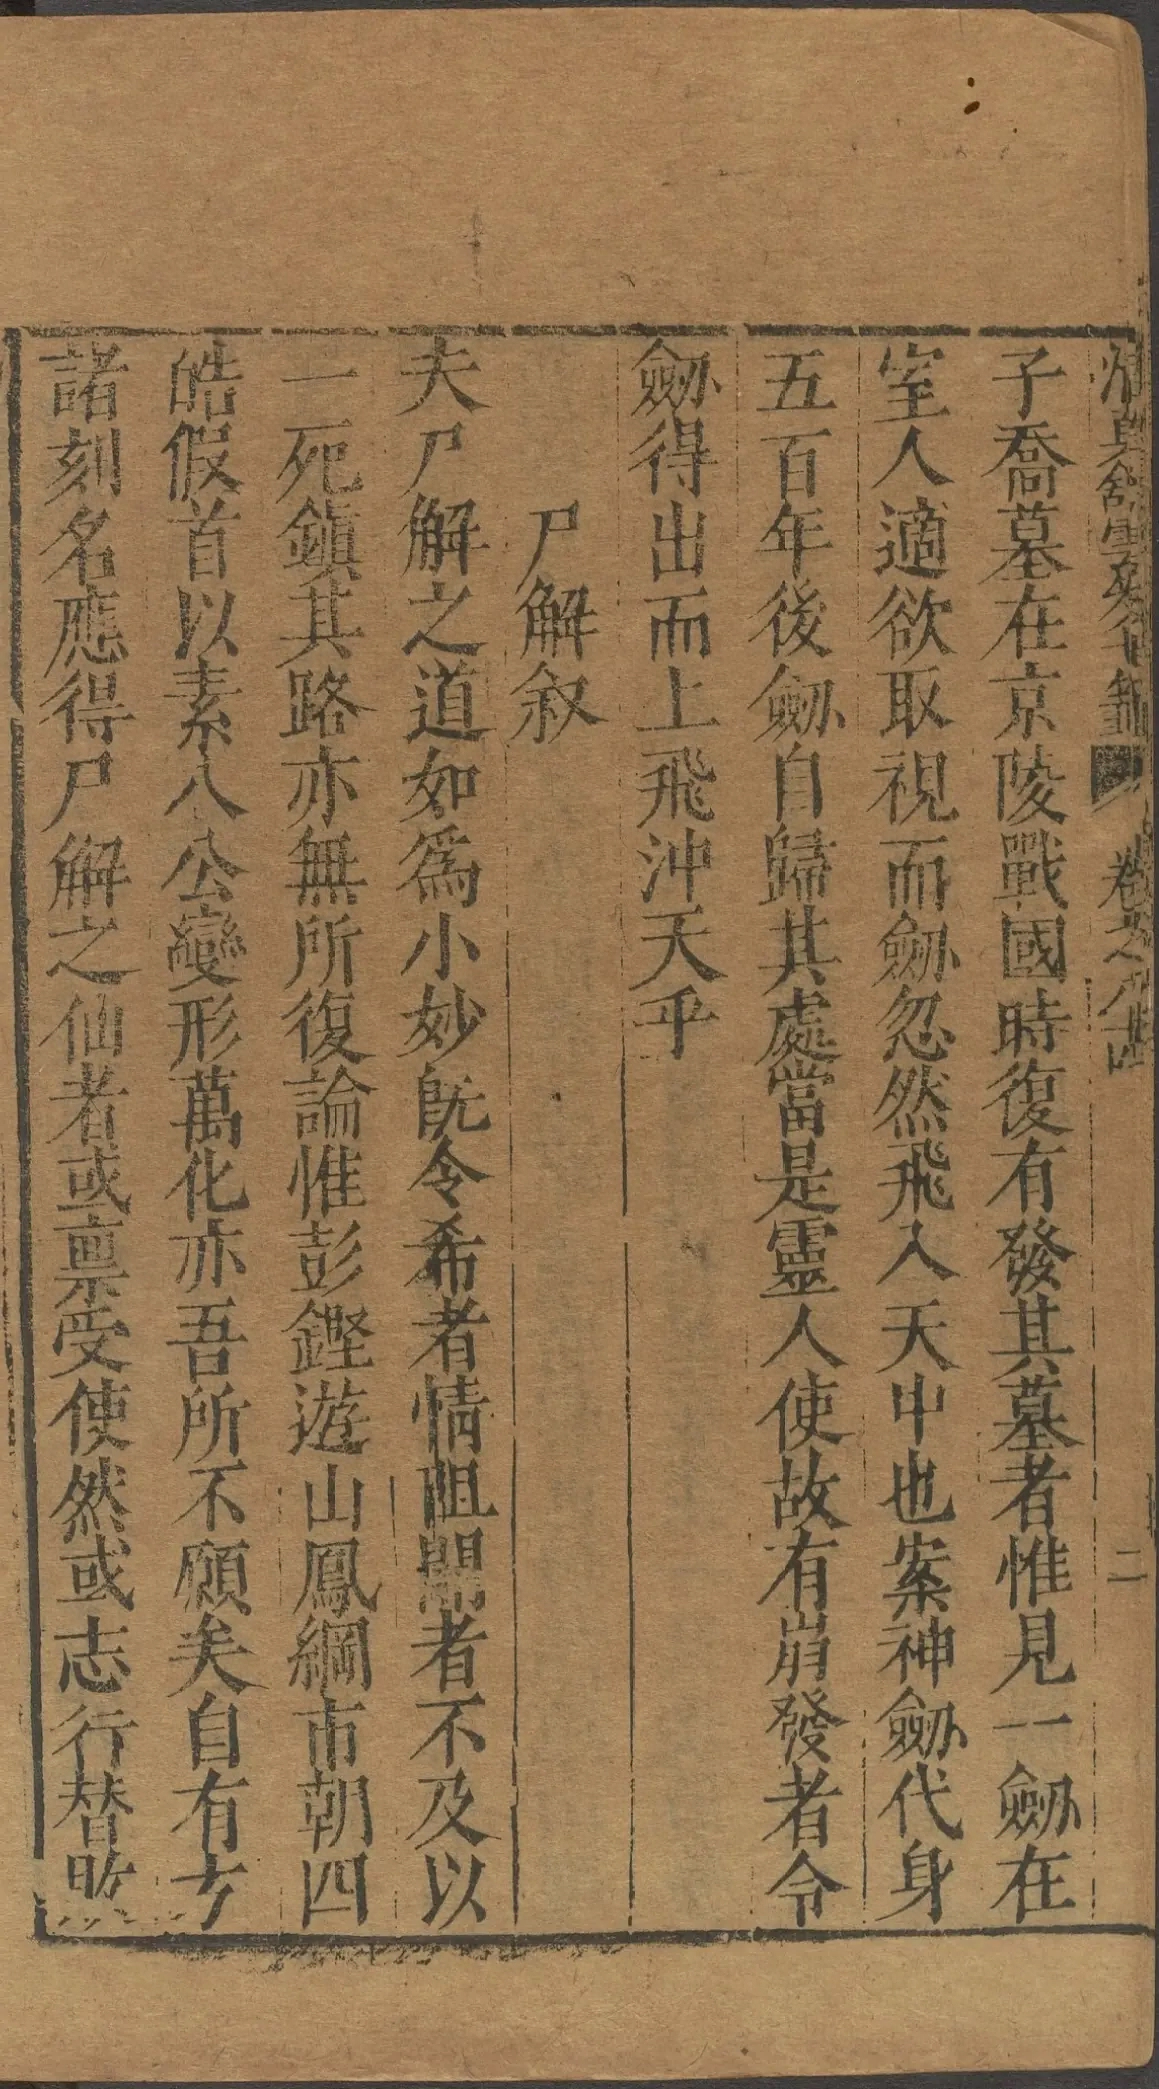 卷之八十四
二
子喬墓在京陵戰國時復有發其墓者惟見一劒在
室人適欲取視而劒忽然飛入天中也案神劒代身
五百年後劒自歸其處當是靈人使故有崩發者令
劒得出而上飛沖天乎
尸解叙
夫尸解之道如爲小妙旣令希者情阻閞者不及以
一死鎭其路亦無所復論惟彭鏗遊山鳳綱市朝四
皓假首以素八公變形萬化亦吾所不願矣自有方
諸刻名應得尸解之仙者或禀受使然或志行替敗